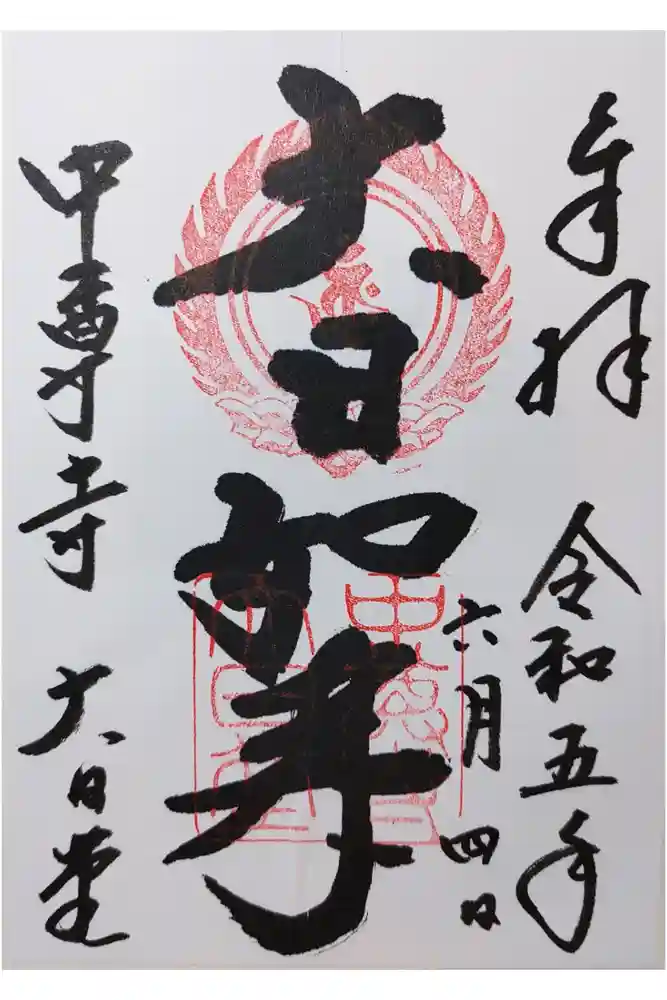 奉拝 令和五年
六月四日
大日如来
中尊寺 大日堂